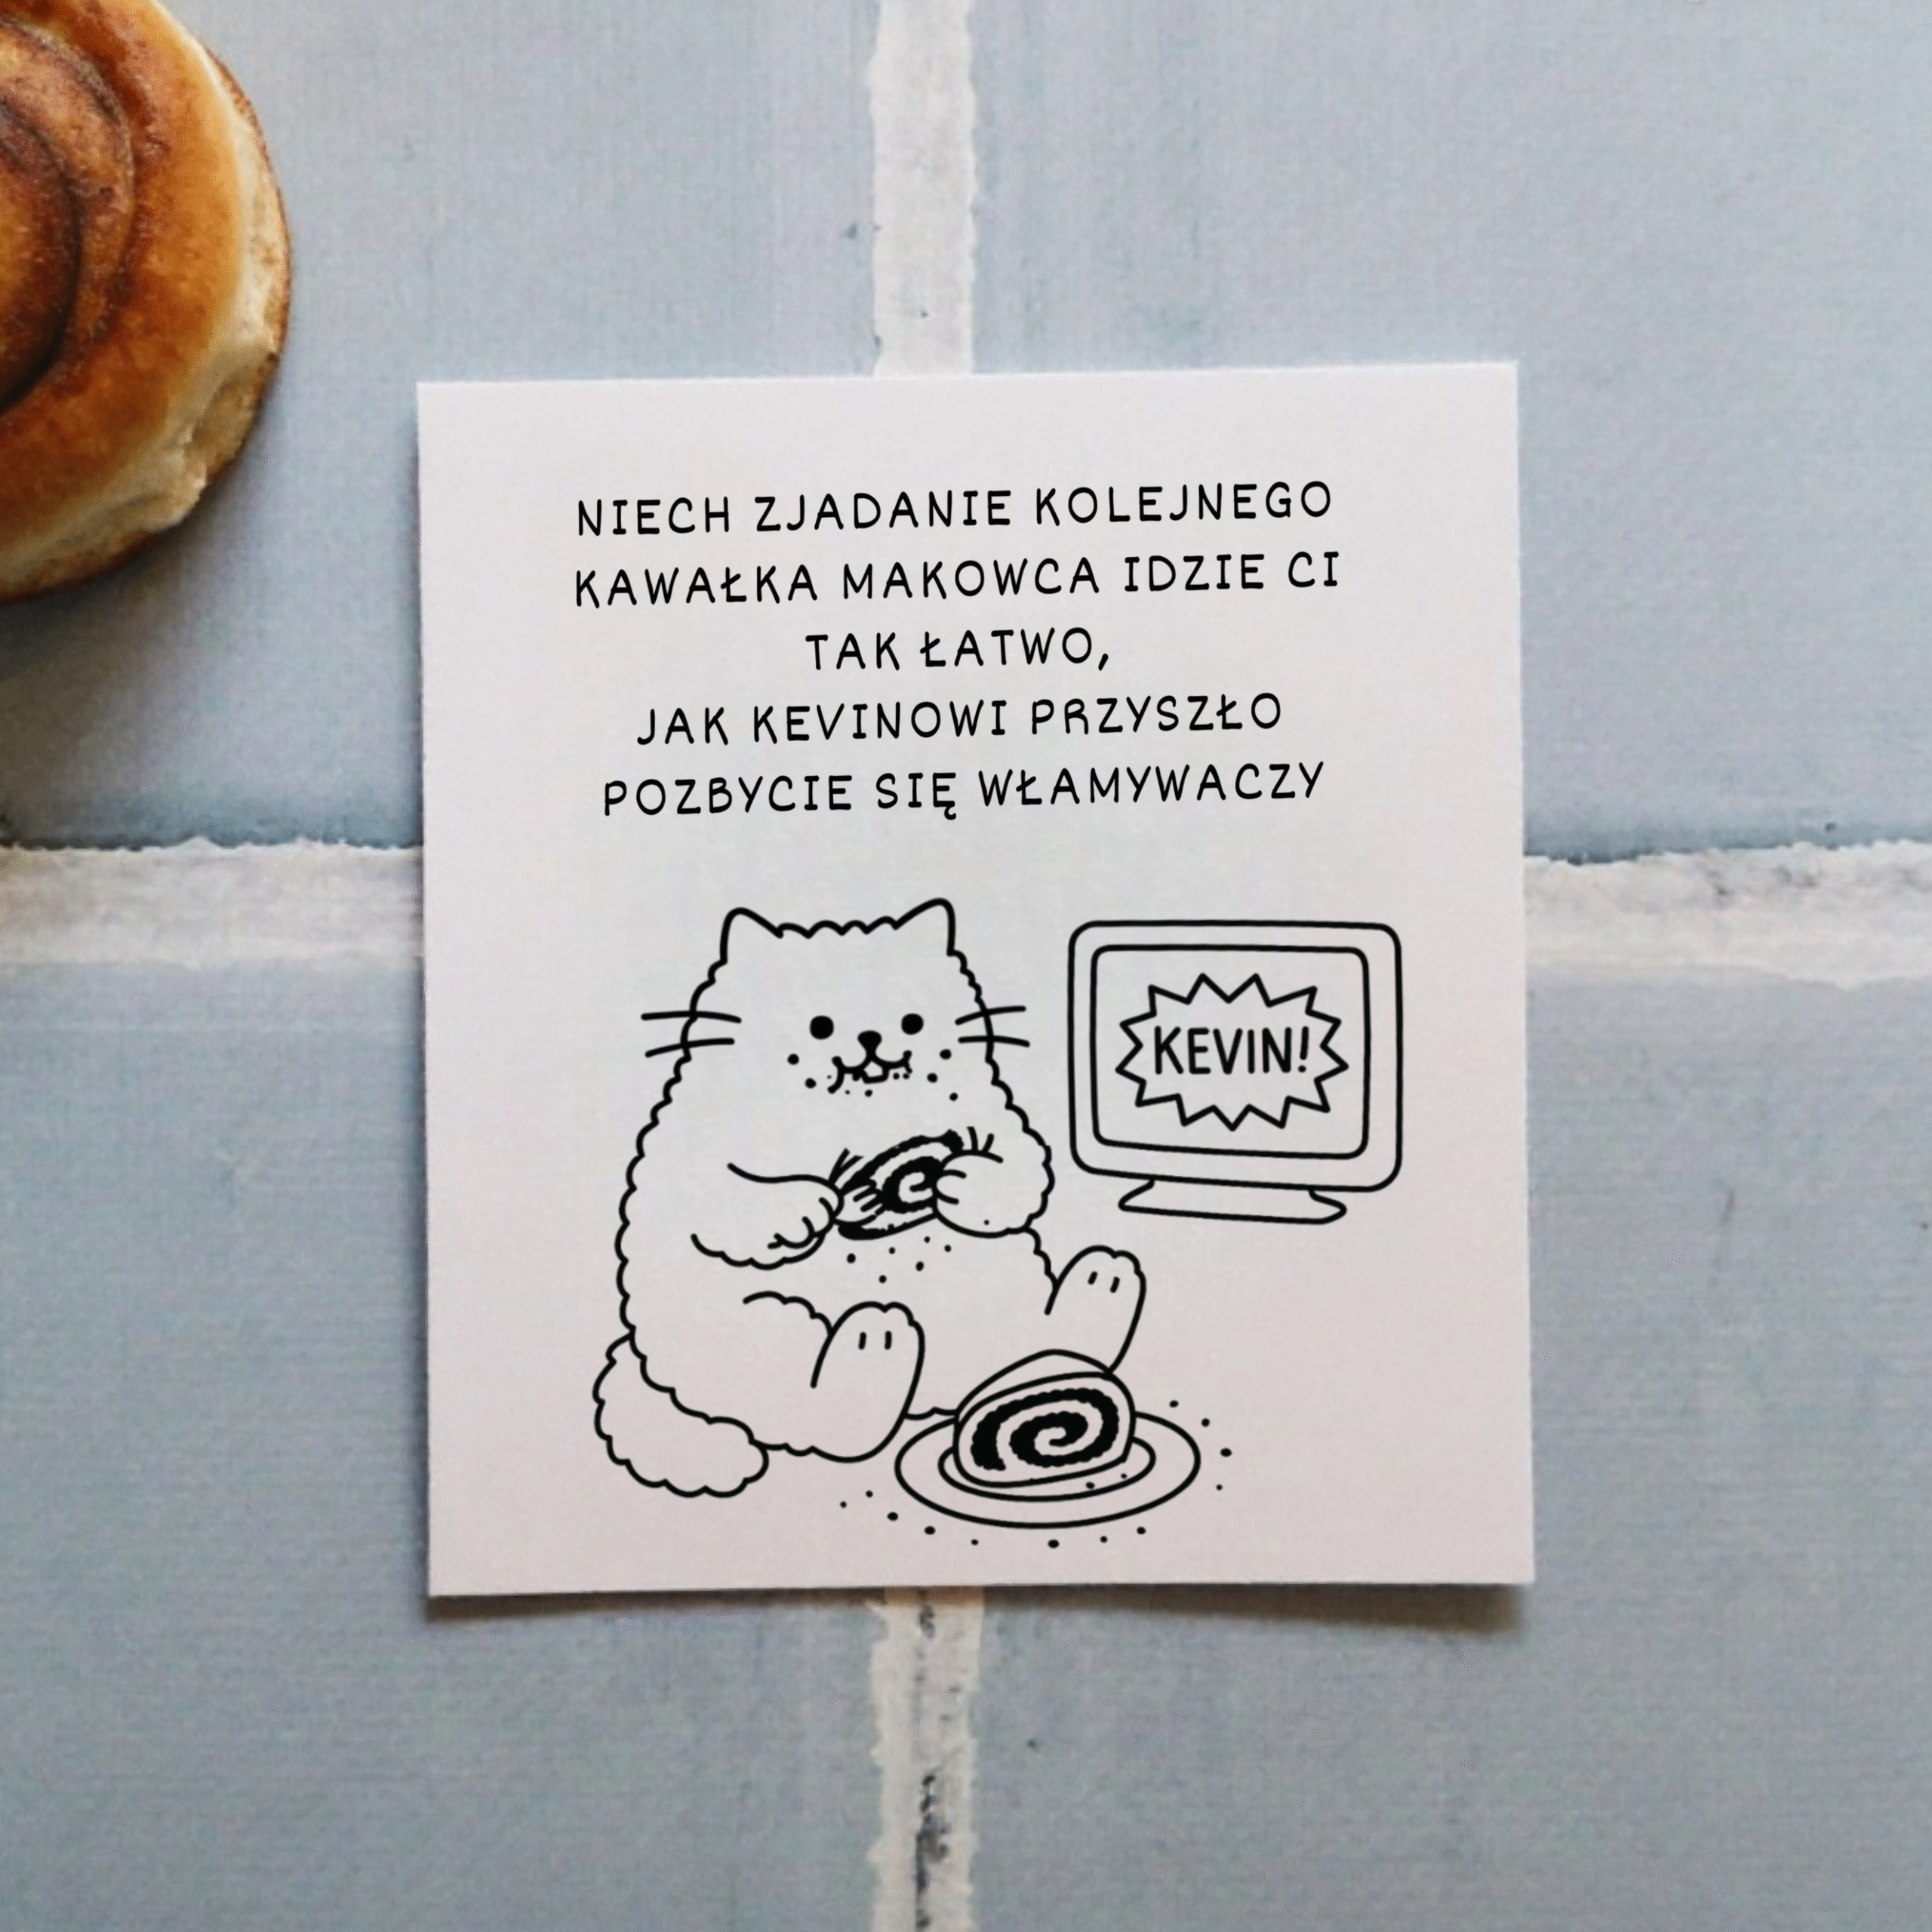 NIECH ZJADANIE KOLEJNEGO
KAWAŁKA MAKOWCA IDZIE CI
TAK ŁATWO,
JAK KEVINOWI PRZYSZŁO
POZBYCIE SIĘ WŁAMYWACZY
KEVIN!